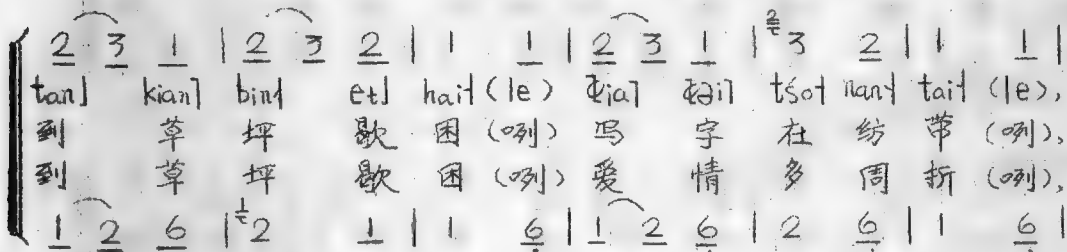 2 3 1 | 2 3 2 | 1 1 | 2 3 1 | 3 2 | 1 1 |
tan˩ kian˥ bin˧ et˩ hai˧ (le) ȶia˥ tsɔ˧ nan˧ tai˧ (le),
到 草 坪 歇 困 (咧) 写 字 在 纺 带 (咧),
到 草 坪 歇 困 (咧) 爱 情 多 周 折 (咧),
1 2 6 | 2 1 | 1 6̣ | 1 2 6̣ | 2 6̣ | 1 6̣ |